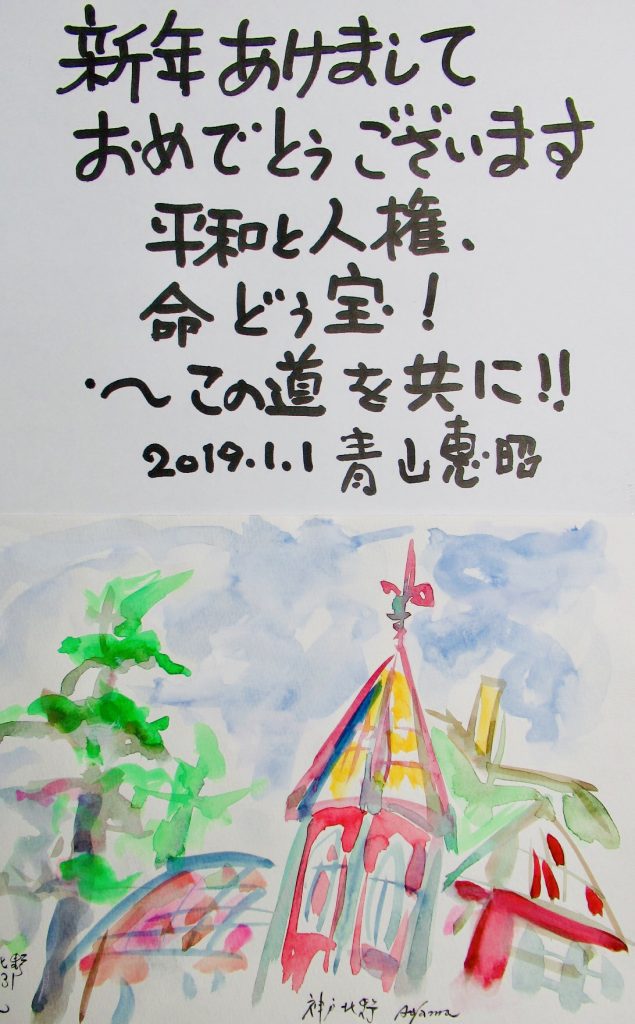 新年あけまして
おめでとうございます
平和と人権、
命どぅ宝!
・〜この道を共に!!
2019.1.1 青山惠昭
神戸北野 Aoyama
北野